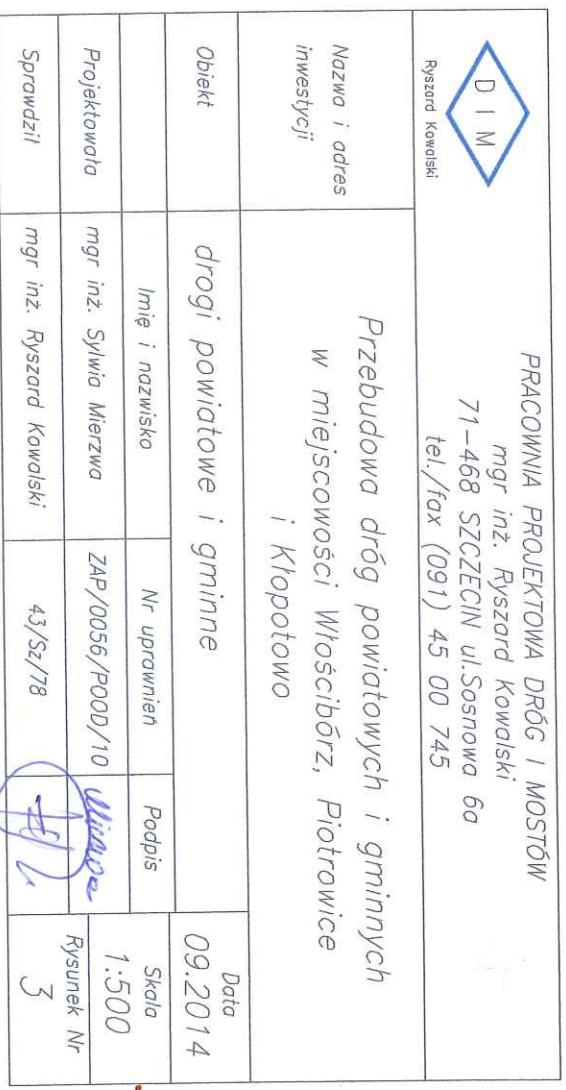 D I M
Ryszard Kowalski
PRACOWNIA PROJEKTOWA DRÓG I MOSTÓW
mgr inż. Ryszard Kowalski
71-468 SZCZECIN ul.Sosnowa 6a
tel./fax (091) 45 00 745
Nazwa i adres
inwestycji
Przebudowa dróg powiatowych i gminnych
w miejscowości Włościbórz, Piotrowice
i Kłopotowo
Obiekt
drogi powiatowe i gminne
Data
09.2014
Imię i nazwisko
Nr uprawnień
Podpis
Skala
1:500
Projektowała
mgr inż. Sylwia Mierzwa
ZAP/0056/POOD/10
Mierzwa
Sprawdził
mgr inż. Ryszard Kowalski
43/Sz/78
Rysunek Nr
3